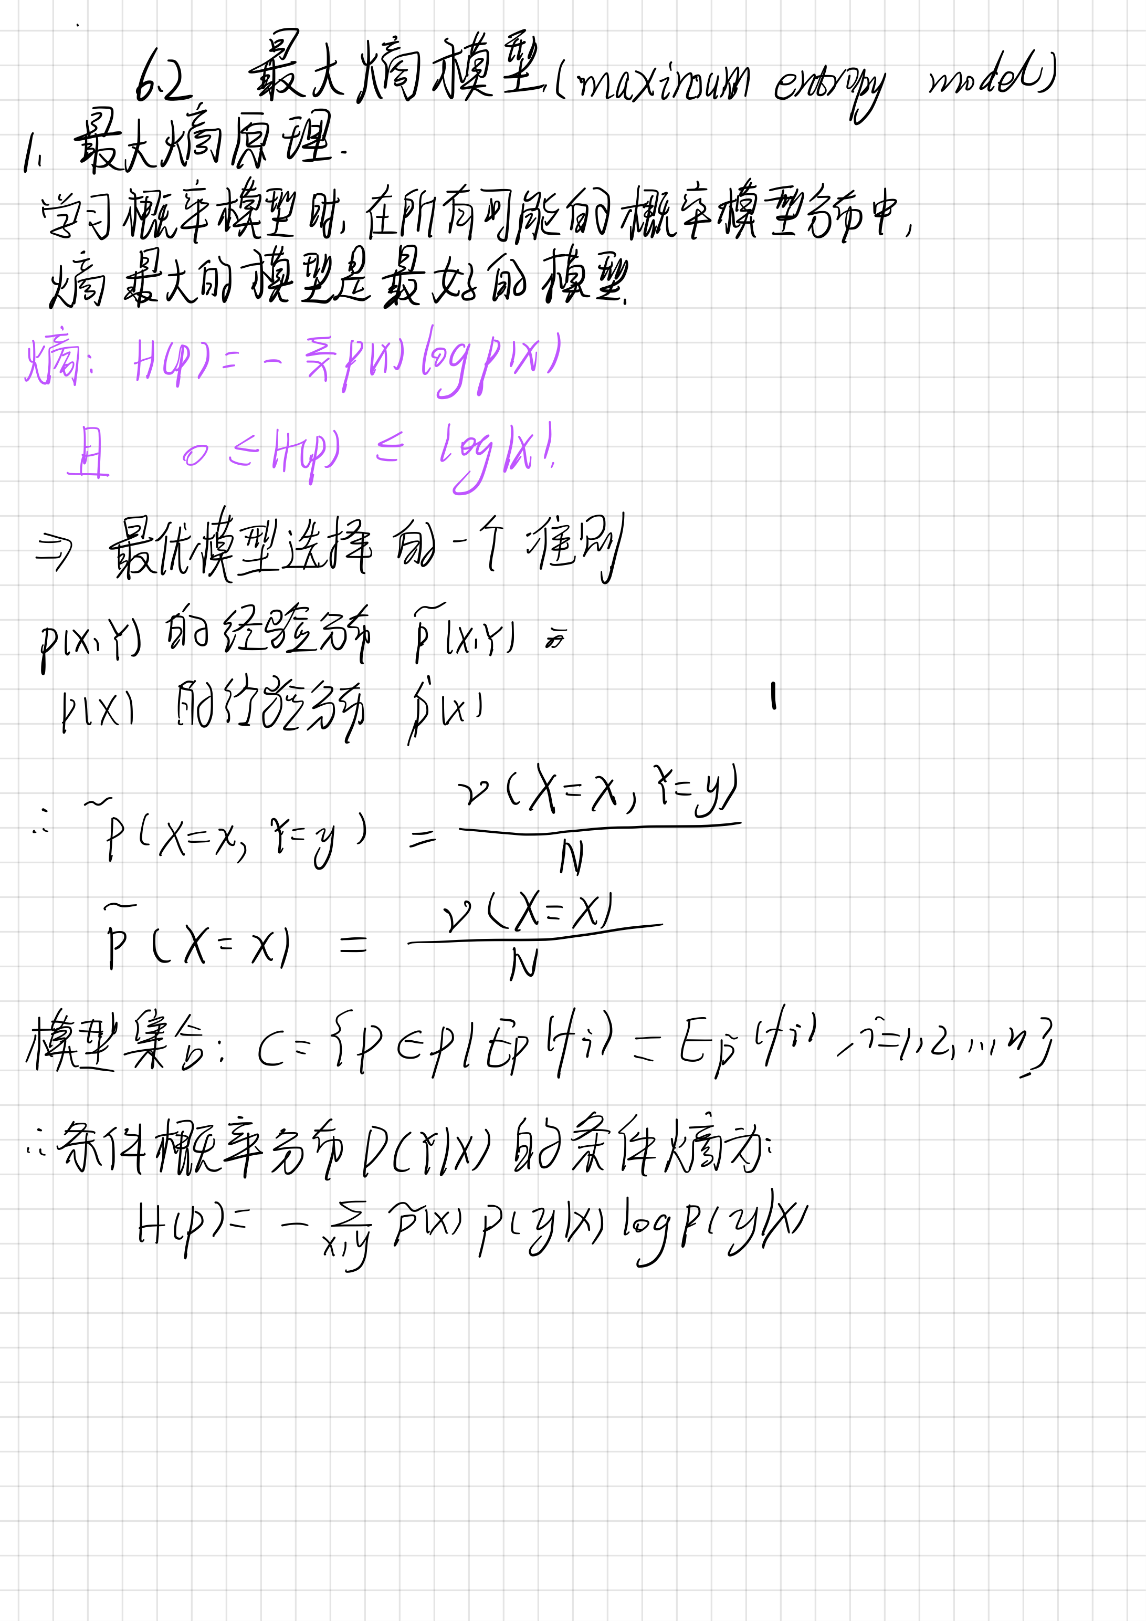 6.2 最大熵模型(maximum entropy model)
1. 最大熵原理.
学习概率模型时, 在所有可能的概率模型分布中,
熵最大的模型是最好的模型.
熵: H(p) = - Σ_x P(x) log P(x)
且 0 ≤ H(p) ≤ log|X|.
⇒ 最优模型选择的一个准则
P(X,Y) 的经验分布 p̃(X,Y)
P(X) 的经验分布 p̃(x)
∴ p̃(X=x, Y=y) = ν(X=x, Y=y) / N
p̃(X=x) = ν(X=x) / N
模型集合: C = {P ∈ P | E_P(f_i) = E_P̃(f_i), i=1,2,...,n}
∴ 条件概率分布 P(Y|X) 的条件熵为:
H(p) = - Σ_{x,y} p̃(x) P(y|x) log P(y|x)